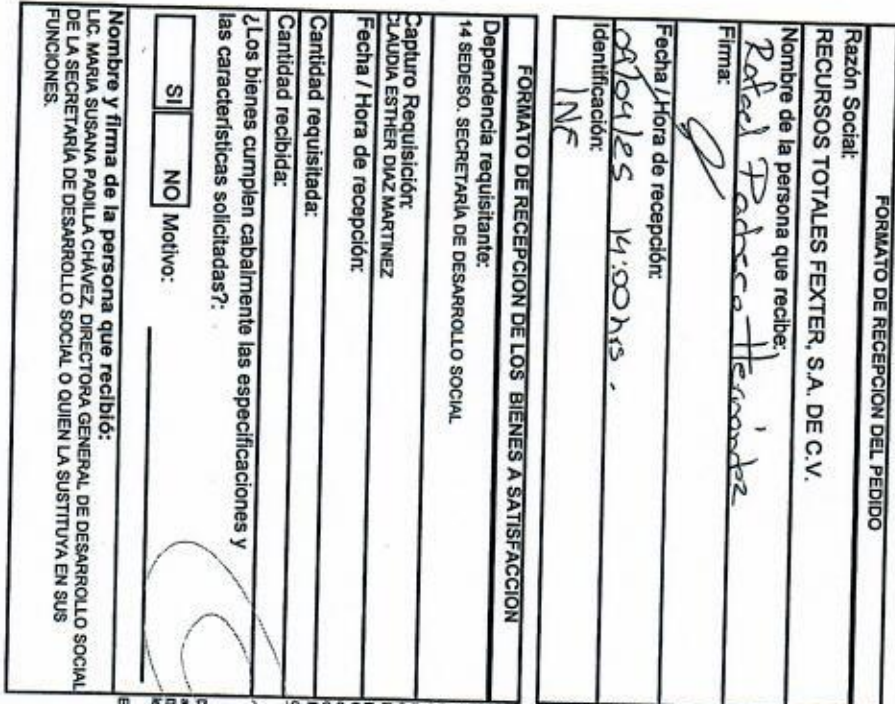 FORMATO DE RECEPCION DEL PEDIDO
Razón Social:
RECURSOS TOTALES FEXTER, S.A. DE C.V.
Nombre de la persona que recibe:
Rafael Pacheco Hernández
Firma:
Fecha / Hora de recepción:
14:00 hrs.
Identificación:
INE
FORMATO DE RECEPCION DE LOS BIENES A SATISFACCION
Dependencia requisitante:
14 SEDESO. SECRETARÍA DE DESARROLLO SOCIAL
Capturo Requisición:
CLAUDIA ESTHER DIAZ MARTINEZ
Fecha / Hora de recepción:
Cantidad requisitada:
Cantidad recibida:
¿Los bienes cumplen cabalmente las especificaciones y
las características solicitadas?:
SI NO Motivo:
Nombre y firma de la persona que recibió:
LIC. MARIA SUSANA PADILLA CHÁVEZ, DIRECTORA GENERAL DE DESARROLLO SOCIAL
DE LA SECRETARÍA DE DESARROLLO SOCIAL O QUIEN LA SUSTITUYA EN SUS
FUNCIONES.